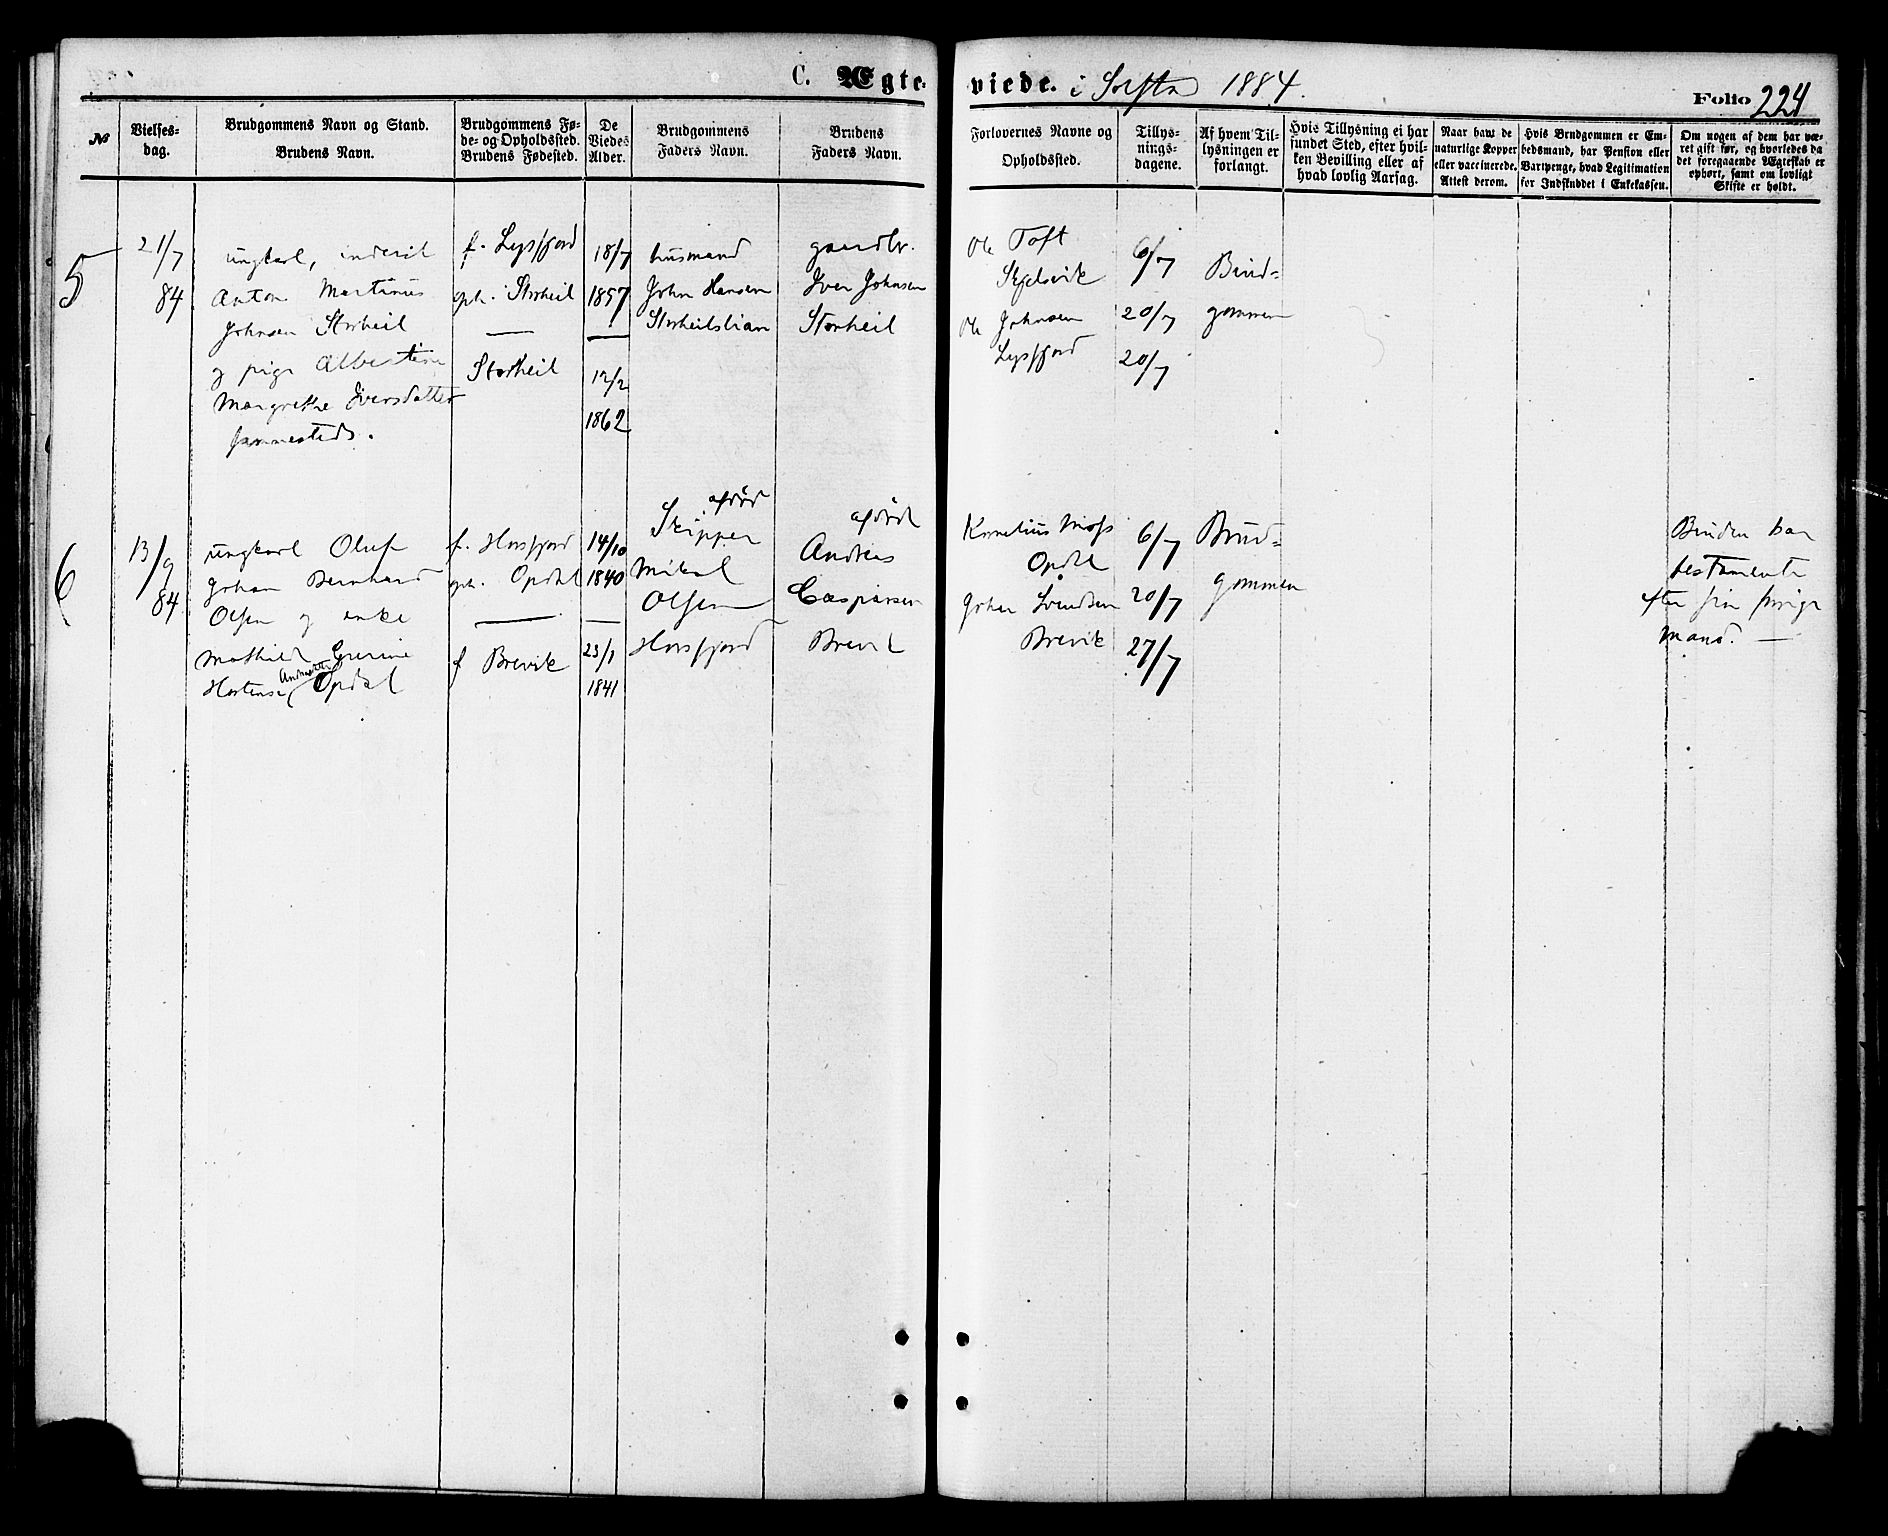 C. Ægteviede. i 1884.
Folio 224
№
Vielsesdag.
Brudgommens Navn og Stand.
Brudens Navn.
Brudgommens Føde- og Opholdssted.
Brudens Fødested.
De Viedes Alder.
Brudgommens
Faders Navn.
Brudens
Faders Navn.
Forlovernes Navne og
Opholdssted.
Tillysningsdagene.
Af hvem Tillysningen er forlangt.
Hvis Tillysning ei har fundet Sted, efter hvilken Bevilling eller af hvad lovlig Aarsag.
Naar havt de naturlige Kopper eller vaccinerede. Attest derom.
Hvis Brudgommen er Embedsmand, har Pension eller Vartpenge, hvad Legitimation for Indskuddet i Enkekassen.
Om nogen af dem har været gift før, og hvorledes da det foregaaende Ægteskab er ophørt, samt om lovligt Skifte er holdt.
5
21/7
84
ungkarl, inderst
Anton Martinus
Johnsen Storheil
og pige Albertine
Margrethe Iversdatter
sammesteds.
f. Lysfjord
oph. Storheil
—
Storheil
18/7
1857
—
12/2
1862
husmand
John Hansen
Storheilslian
gaardbr.
Iver Johnsen
Storheil
Ole Toft
Skjelsvik
Ole Johnsen
Lysfjord
6/7
20/7
20/7
Brud=
gommen
6
13/9
84
ungkarl Oluf
Johan Bernhard
Olsen og enke
Mathilde Grurine
Hortense Andreasdtr Opdal
f. Horsfjord
oph. Opdal
—
f Brevik
14/10
1840
—
23/1
1841
afdød
Skipper
Mikal
Olsen
Horsfjord
afdød
Andreas
Casparsen
Brevik
Kornelius Moss
Opdal
Johan Svendsen
Brevik
6/7
20/7
27/7
Brud=
gommen
Bruden har
testamente
efter sin forrige
mand. —